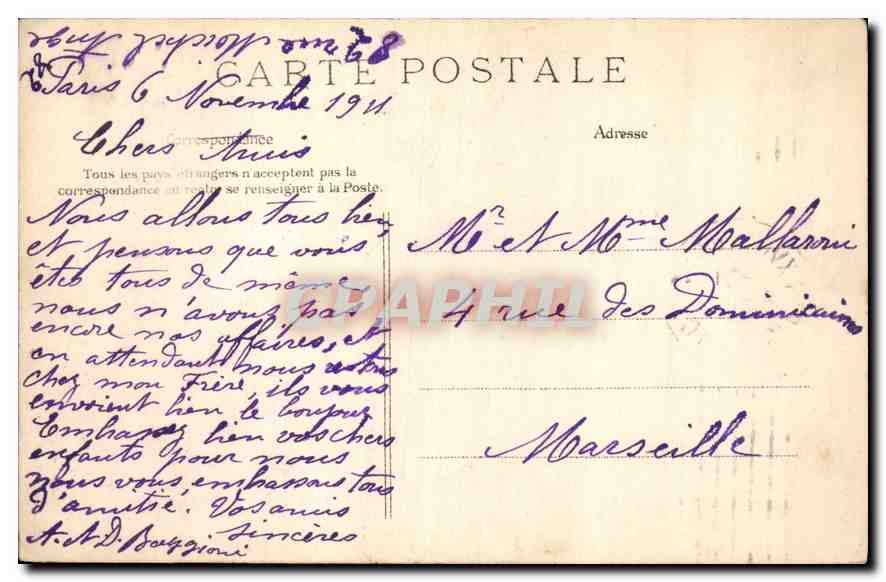 CARTE POSTALE
Paris 6 Novembre 1911
Correspondance
Chers Amis
Tous les pays étrangers n'acceptent pas la
correspondance au recto, se renseigner à la Poste.
Nous allons tous bien,
et pensons que vous
êtes tous de même
nous n'avons pas
encore nos affaires, et
en attendant nous restons
chez mon Frère, ils vous
envoient bien le bonjour
Embrassez bien vos chers
enfants pour nous
nous vous embrassons tous
d'amitié. Vos amis
sincères
A. et D. Bozzioni
Adresse
Mr et Mme Mallaroni
4 rue des Dominicaines
Marseille
CPAPHIL